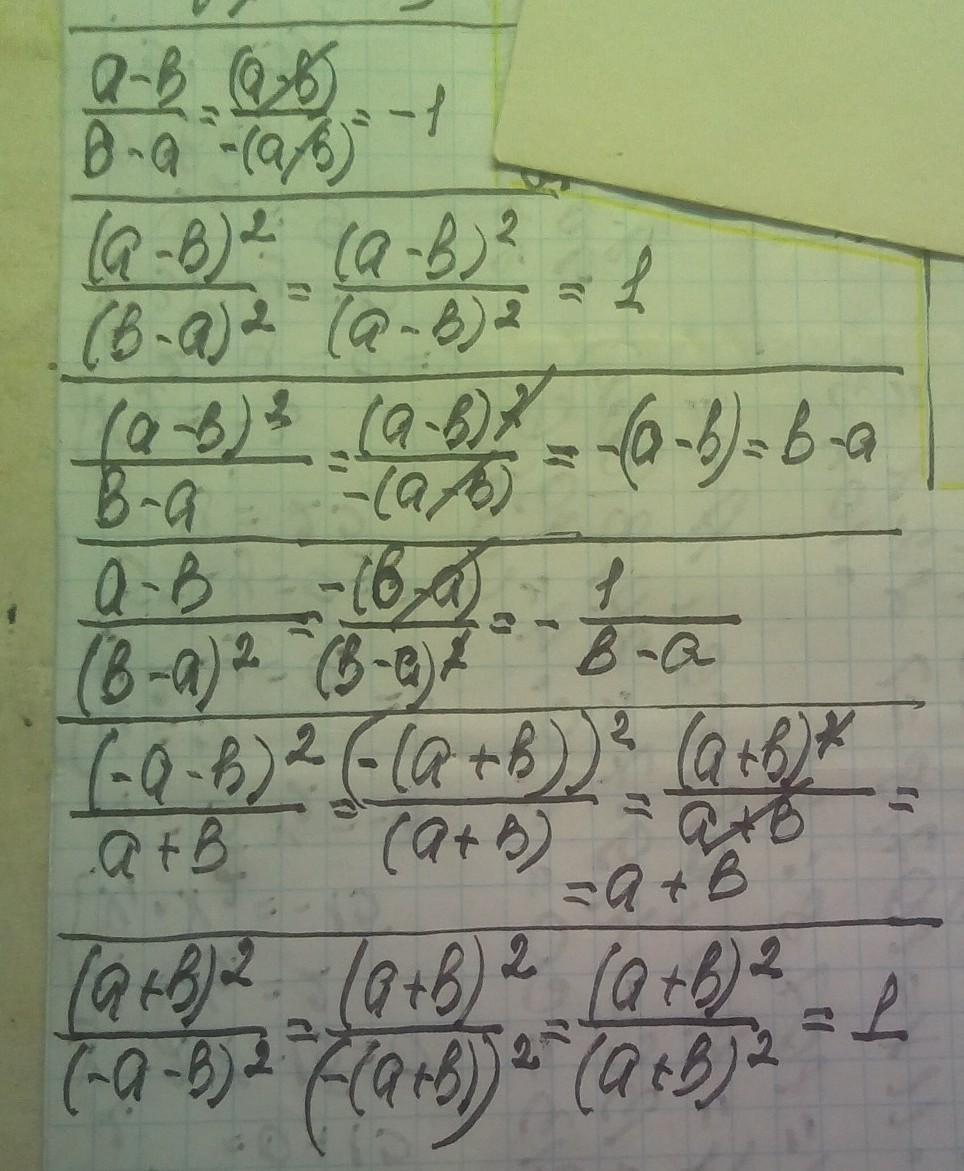 (a-b)/(b-a) = (a-b)/(-(a-b)) = -1
(a-b)²/(b-a)² = (a-b)²/(a-b)² = 1
(a-b)²/(b-a) = (a-b)²/(-(a-b)) = -(a-b) = b-a
(a-b)/(b-a)² = -(b-a)/(b-a)² = - 1/(b-a)
(-a-b)²/(a+b) = (-(a+b))²/(a+b) = (a+b)²/(a+b) =
= a+b
(a+b)²/(-a-b)² = (a+b)²/(-(a+b))² = (a+b)²/(a+b)² = 1